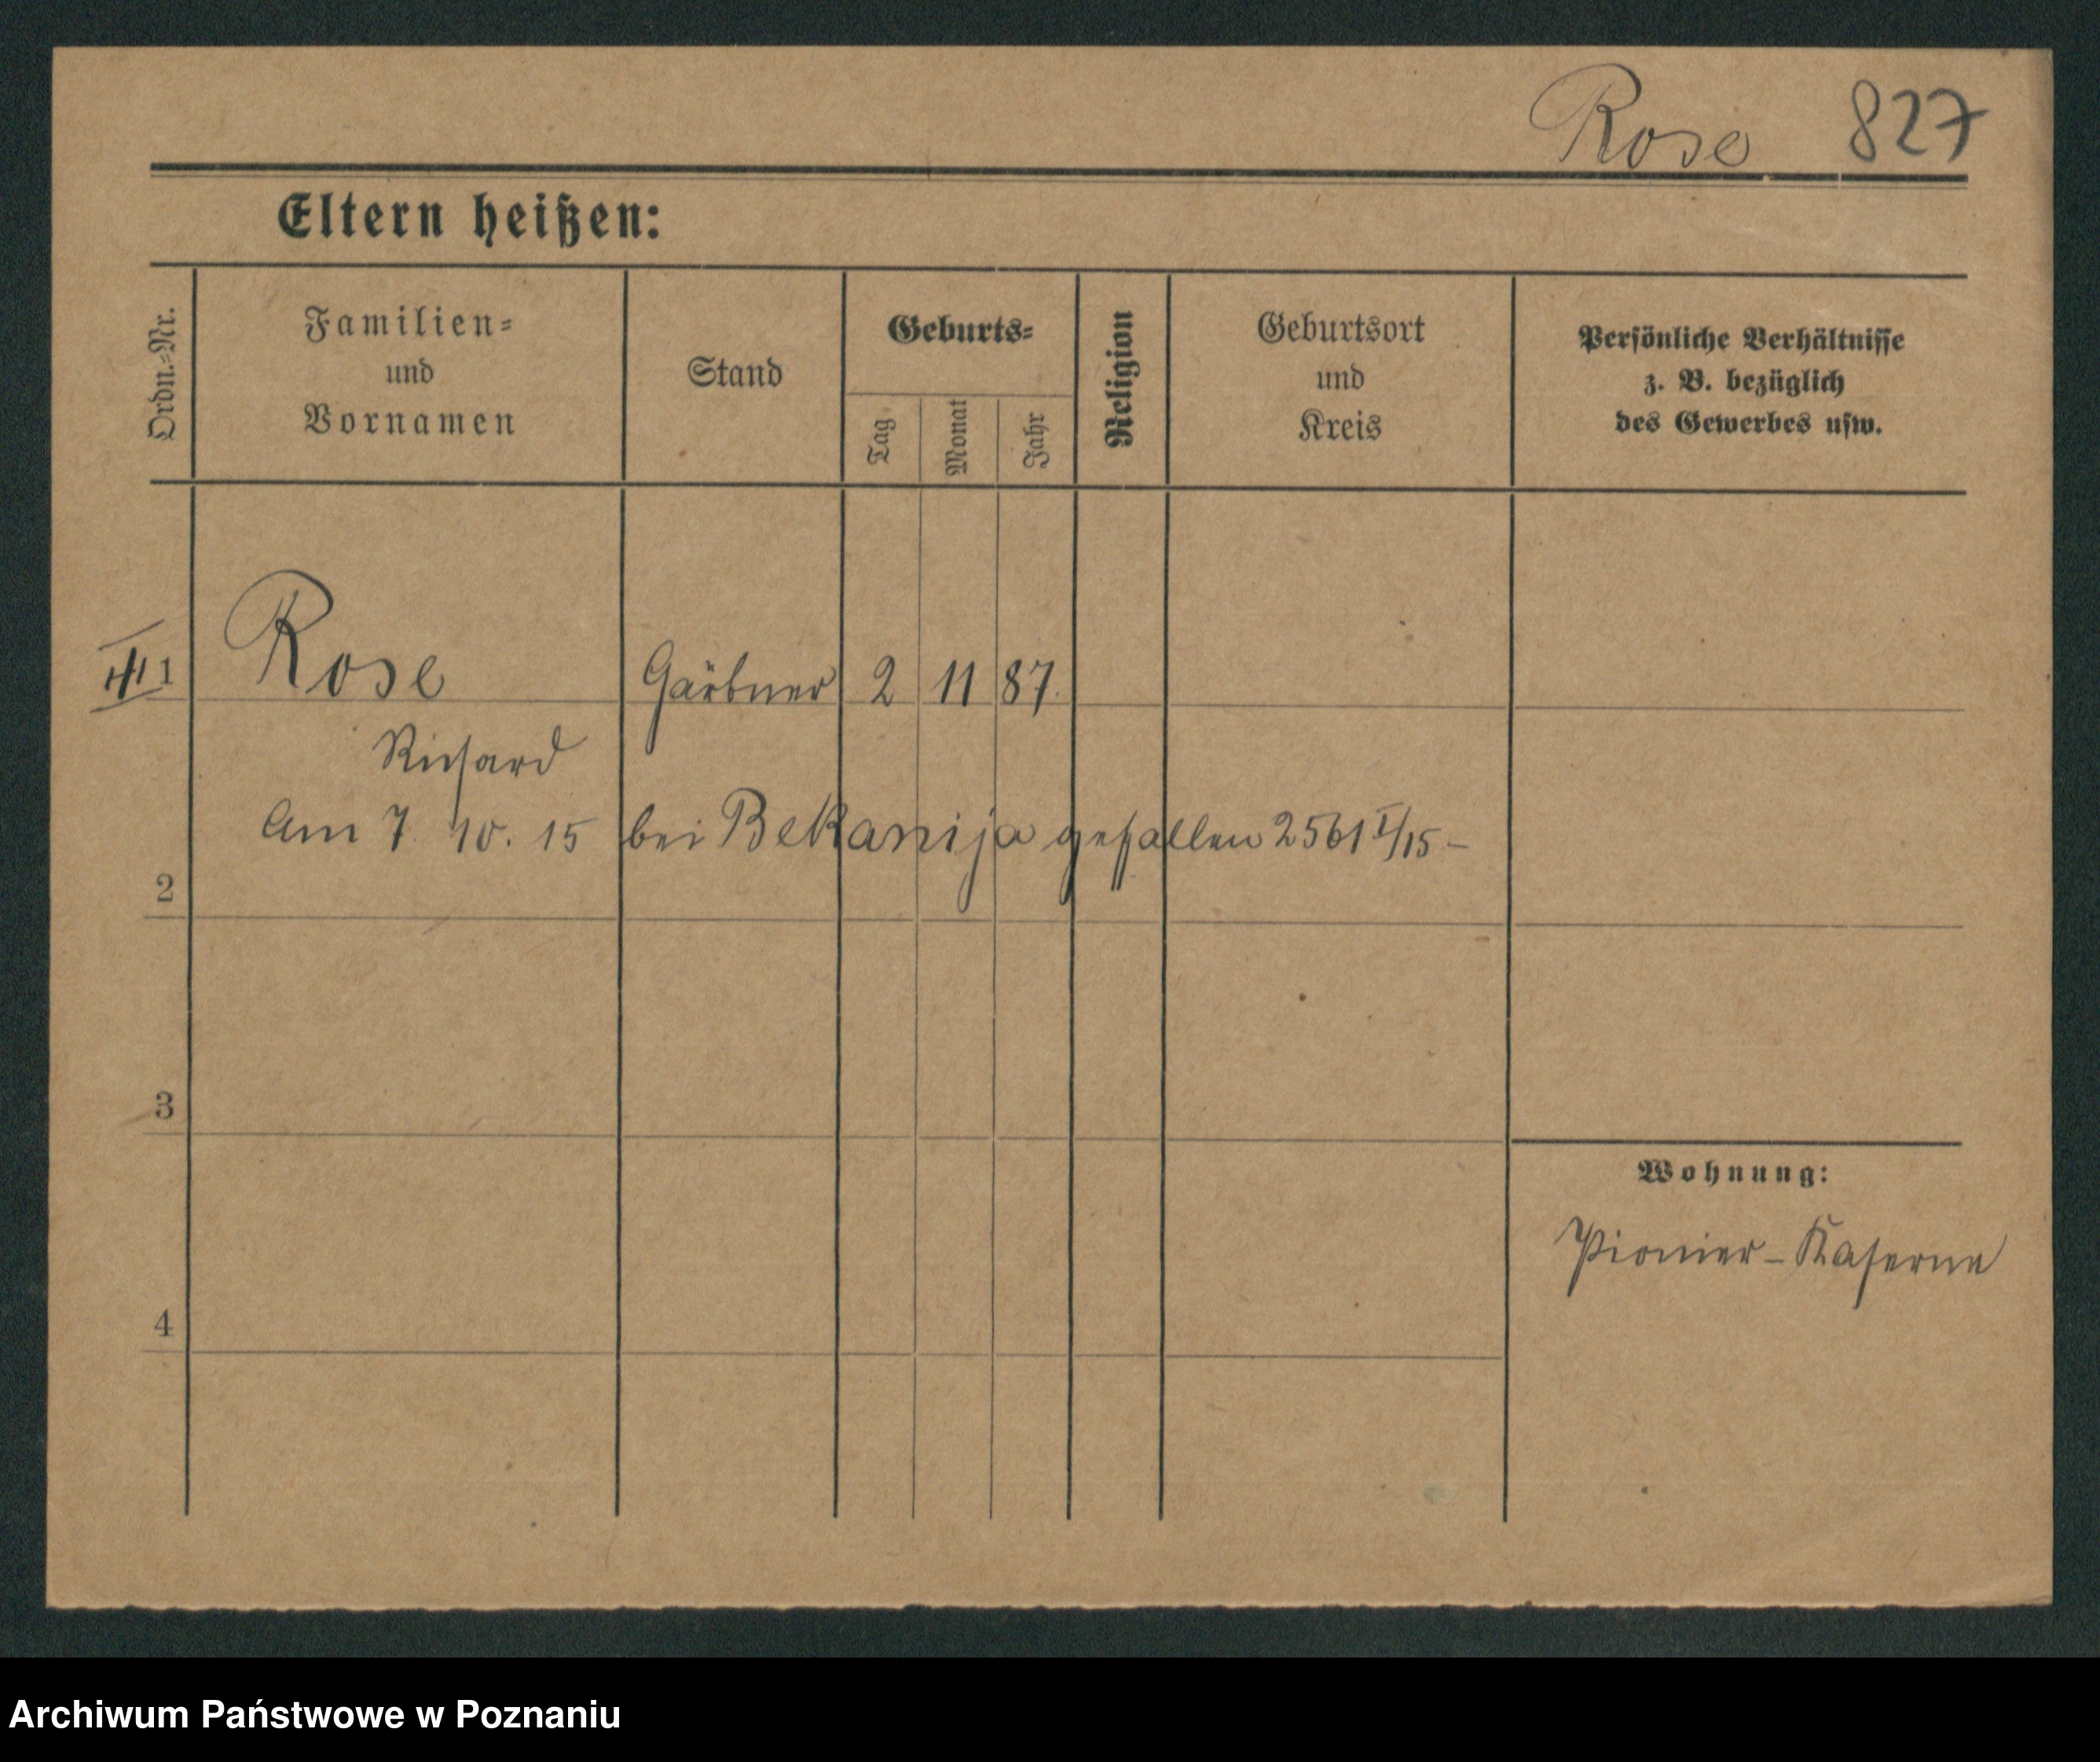 Rose 827
Eltern heißen:
Ordn.-Nr.
Familien-
und
Vornamen
Stand
Geburts-
Tag
Monat
Jahr
Religion
Geburtsort
und
Kreis
Persönliche Verhältnisse
z. B. bezüglich
des Gewerbes usw.
1 Rose Gärtner 2 11 87.
Richard
Am 7. 10. 15 bei Bekanija gefallen 2561 I/15 -
2
3
Wohnung:
Pionier-Kaserne
4
Archiwum Państwowe w Poznaniu